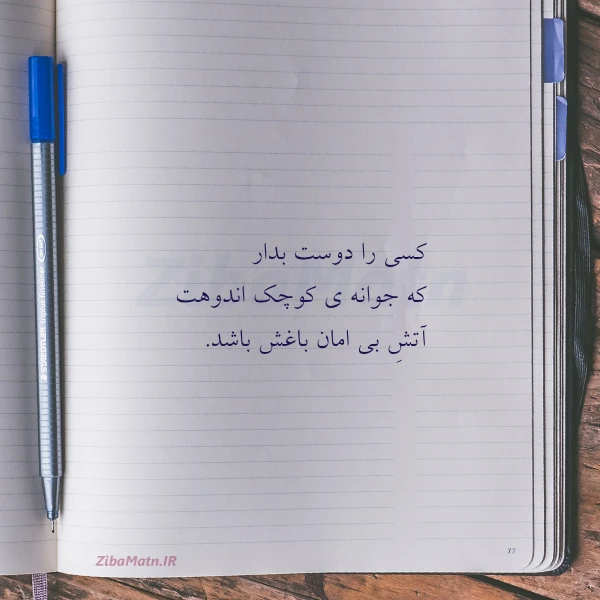 کسی را دوست بدار
که جوانه ی کوچک اندوهت
آتشِ بی امان باغش باشد.
ZibaMatn.IR